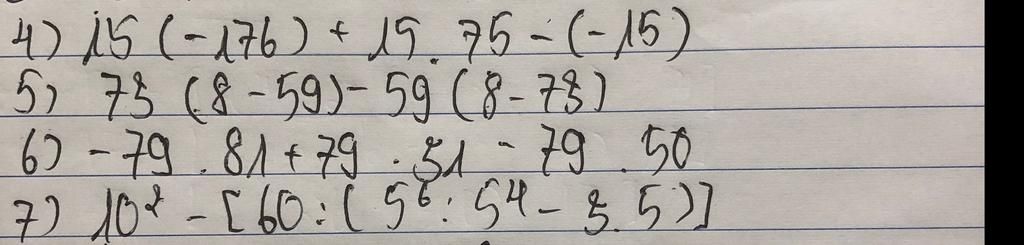 4) 15 (-176) + 15 . 75 - (-15)
5) 73 (8 - 59) - 59 (8 - 73)
6) - 79 . 81 + 79 . 31 - 79 . 50
7) 10² - [60 : (5⁶ : 5⁴ - 3 . 5)]